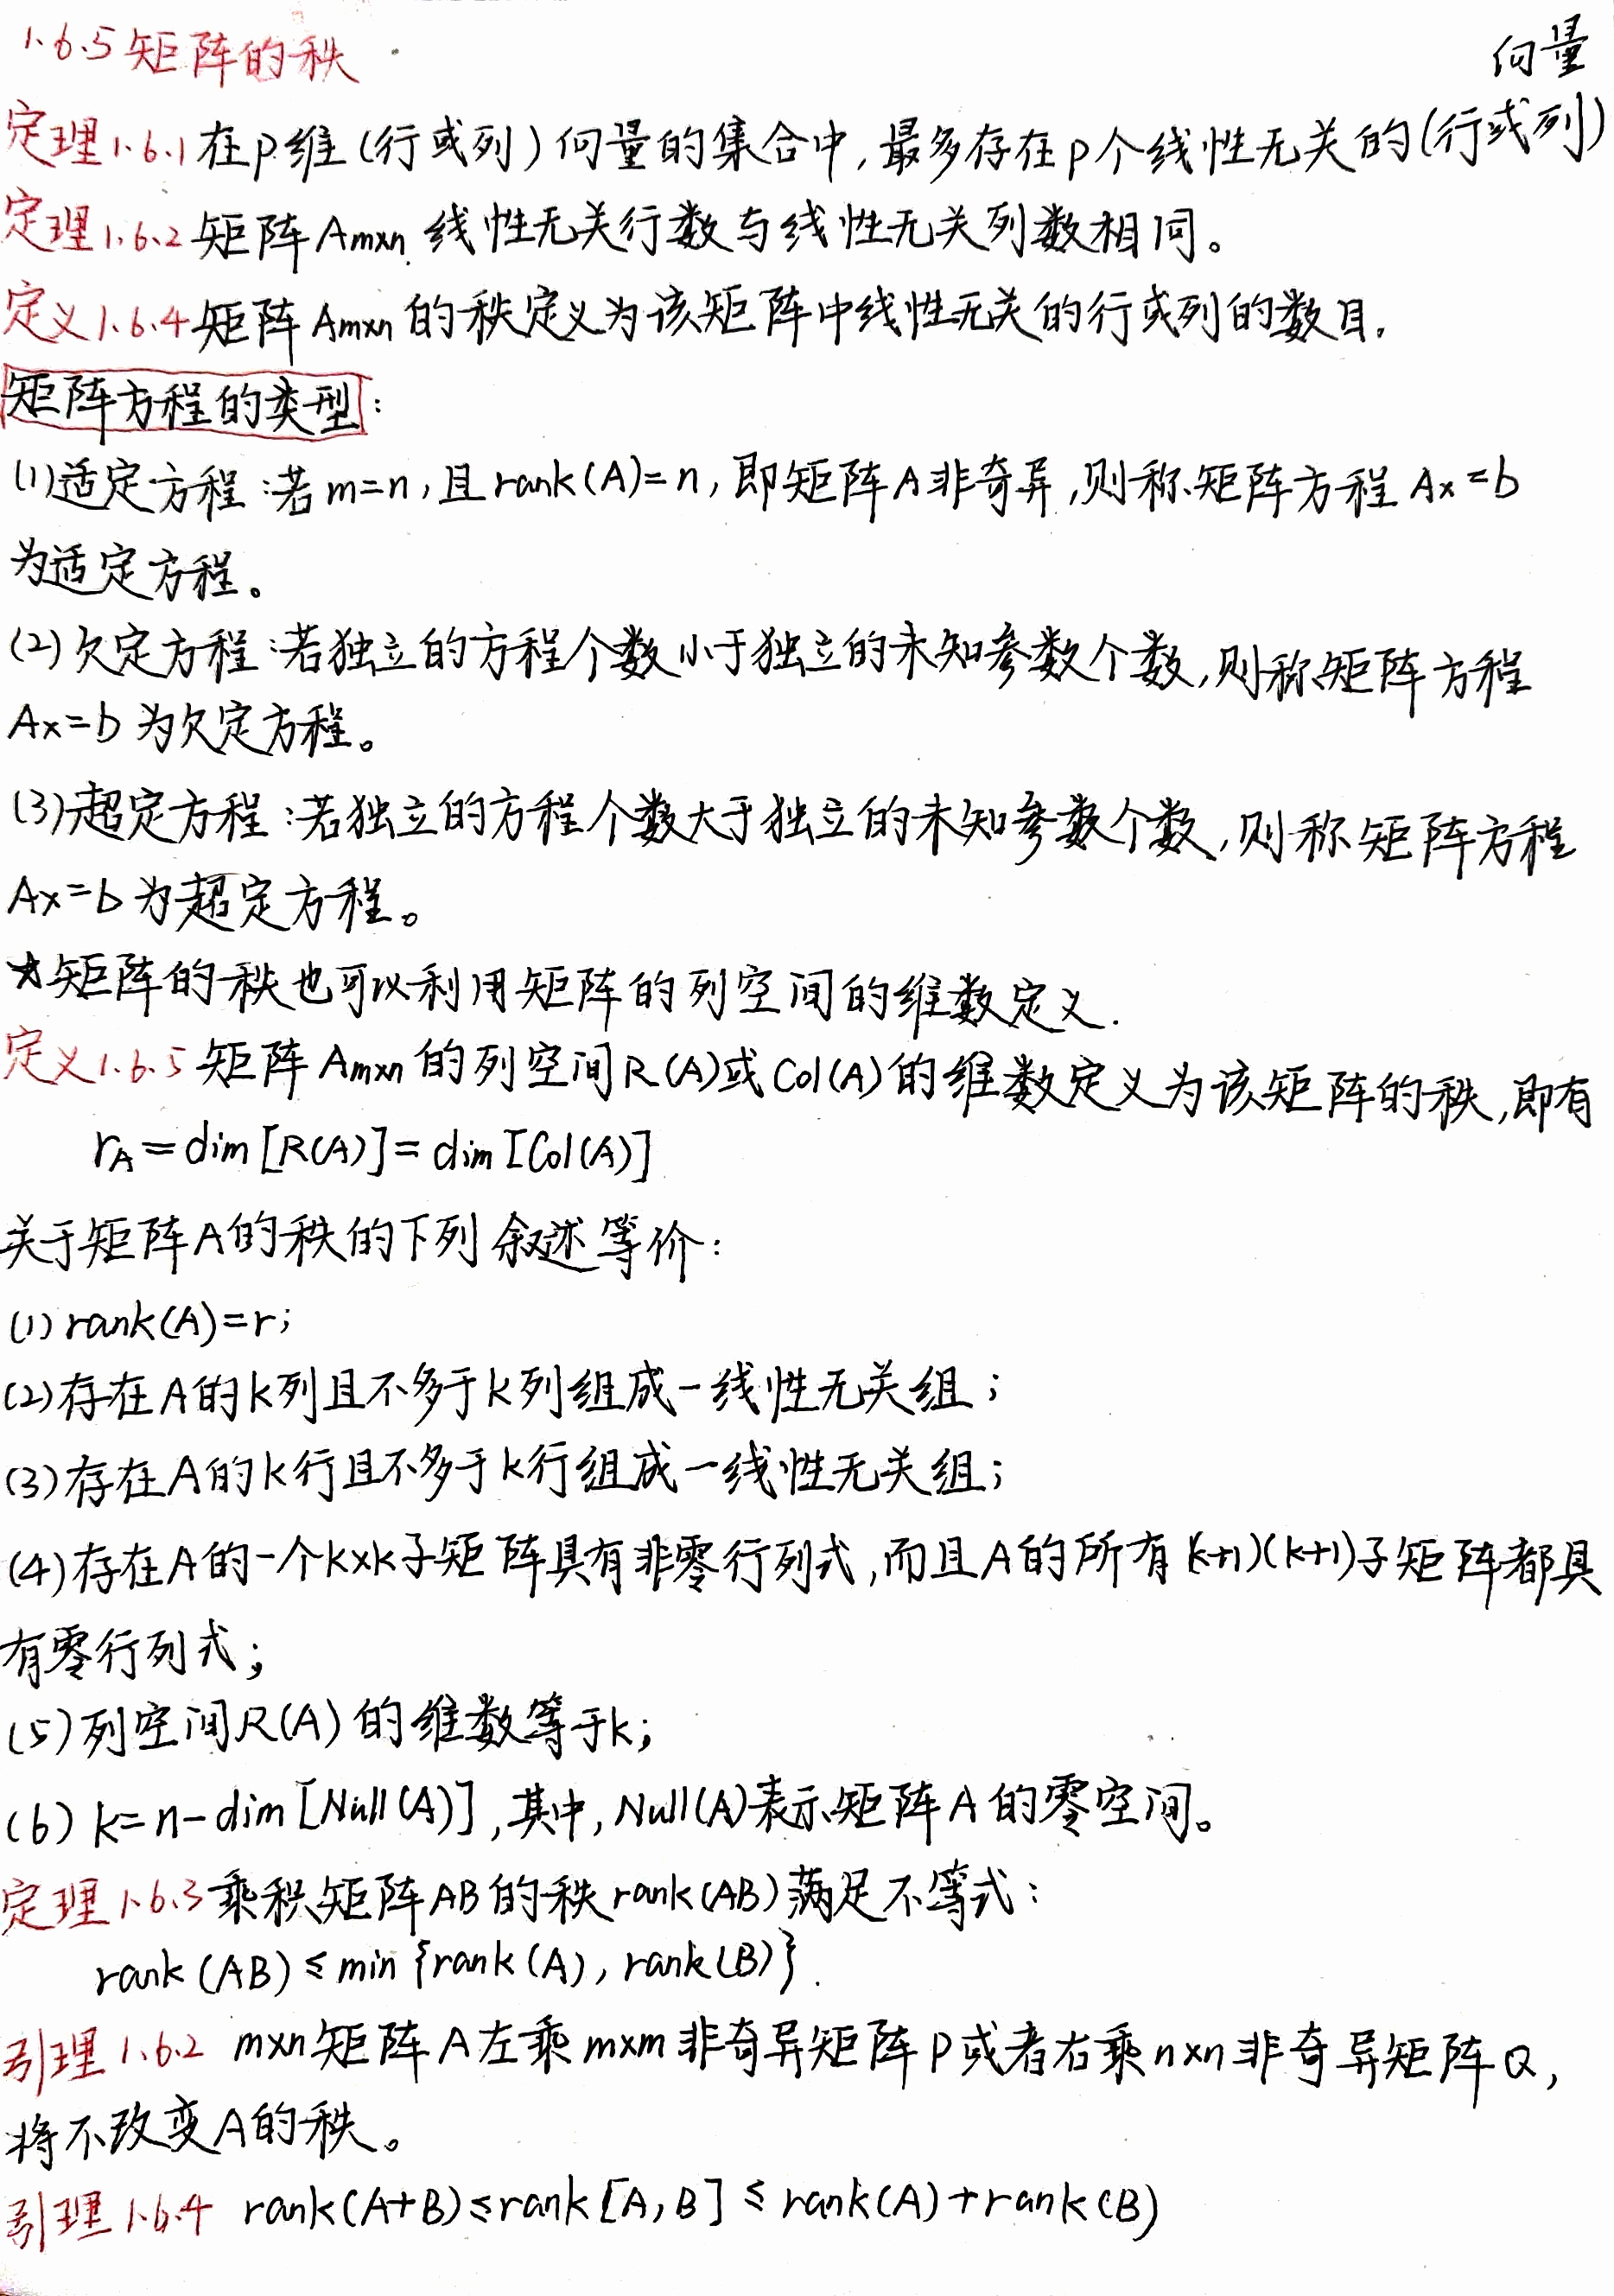 1.6.5 矩阵的秩
向量
定理1.6.1 在p维(行或列)向量的集合中,最多存在p个线性无关的(行或列)
定理1.6.2 矩阵Am×n 线性无关行数与线性无关列数相同。
定义1.6.4 矩阵Am×n的秩定义为该矩阵中线性无关的行或列的数目.
矩阵方程的类型:
(1)适定方程:若m=n,且rank(A)=n,即矩阵A非奇异,则称矩阵方程Ax=b
为适定方程。
(2)欠定方程:若独立的方程个数小于独立的未知参数个数,则称矩阵方程
Ax=b为欠定方程。
(3)超定方程:若独立的方程个数大于独立的未知参数个数,则称矩阵方程
Ax=b为超定方程。
☆矩阵的秩也可以利用矩阵的列空间的维数定义.
定义1.6.5 矩阵Am×n的列空间R(A)或Col(A)的维数定义为该矩阵的秩,即有
rA=dim[R(A)]=dim[Col(A)]
关于矩阵A的秩的下列叙述等价:
(1) rank(A)=r;
(2)存在A的k列且不多于k列组成一线性无关组;
(3)存在A的k行且不多于k行组成一线性无关组;
(4)存在A的一个k×k子矩阵具有非零行列式,而且A的所有(k+1)(k+1)子矩阵都具
有零行列式;
(5)列空间R(A)的维数等于k;
(6) k=n-dim[Null(A)],其中,Null(A)表示矩阵A的零空间。
定理1.6.3 乘积矩阵AB的秩rank(AB)满足不等式:
rank(AB)≤min{rank(A),rank(B)}.
引理1.6.2 m×n矩阵A左乘m×m非奇异矩阵P或者右乘n×n非奇异矩阵Q,
将不改变A的秩。
引理1.6.4 rank(A+B)≤rank[A,B]≤rank(A)+rank(B)